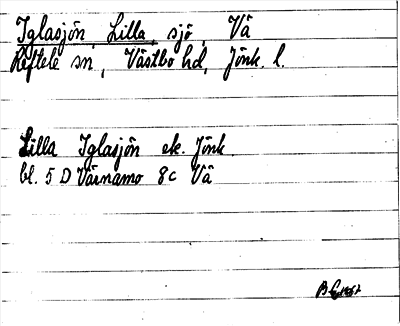 Iglasjön, Lilla, sjö, Vä
Reftele sn, Västbo hd, Jönk. l.
Lilla Iglasjön ek. Jönk.
bl. 5 D Värnamo 8c Vä